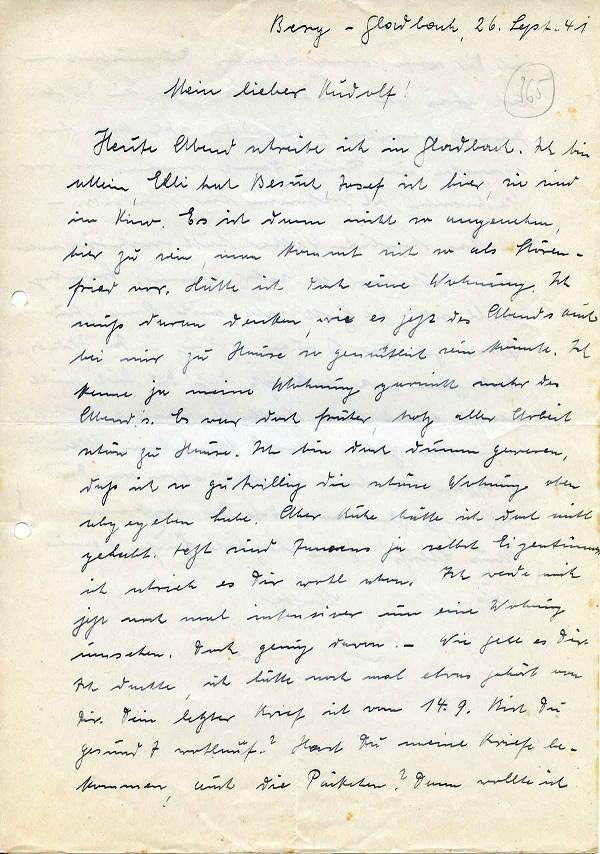 Berg-Gladbach, 26. Sept. 41
365
Mein lieber Rudolf!
Heute Abend schreibe ich in Gladbach. Ich bin
allein, Elli hat Besuch, Josef ist hier, sie sind
im Kino. Es ist dann nicht so angenehm,
hier zu sein, man kommt sich so als Stören-
fried vor. Hätte ich doch eine Wohnung. Ich
muß daran denken, wie es jetzt des Abends auch
bei mir zu Hause so gemütlich sein könnte. Ich
kenne ja meine Wohnung garnicht mehr des
Abends. Es war doch früher, trotz aller Arbeit
schön zu Hause. Ich bin doch dumm gewesen,
daß ich so gutwillig die schöne Wohnung oben
abgegeben habe. Aber Ruhe hätte ich doch nicht
gehabt. Jetzt sind ja selbst Eigentümer
ich schrieb es Dir wohl schon. Ich werde mich
jetzt noch mal intensiver um eine Wohnung
umsehen. Doch genug davon. – Wie geht es Dir.
Ich dachte, ich hätte noch mal etwas gehört von
Dir. Dein letzter Brief ist vom 14.9. Bist Du
gesund & wohlauf? Hast Du meine Briefe be-
kommen, auch die Päckchen? Dann wollte ich